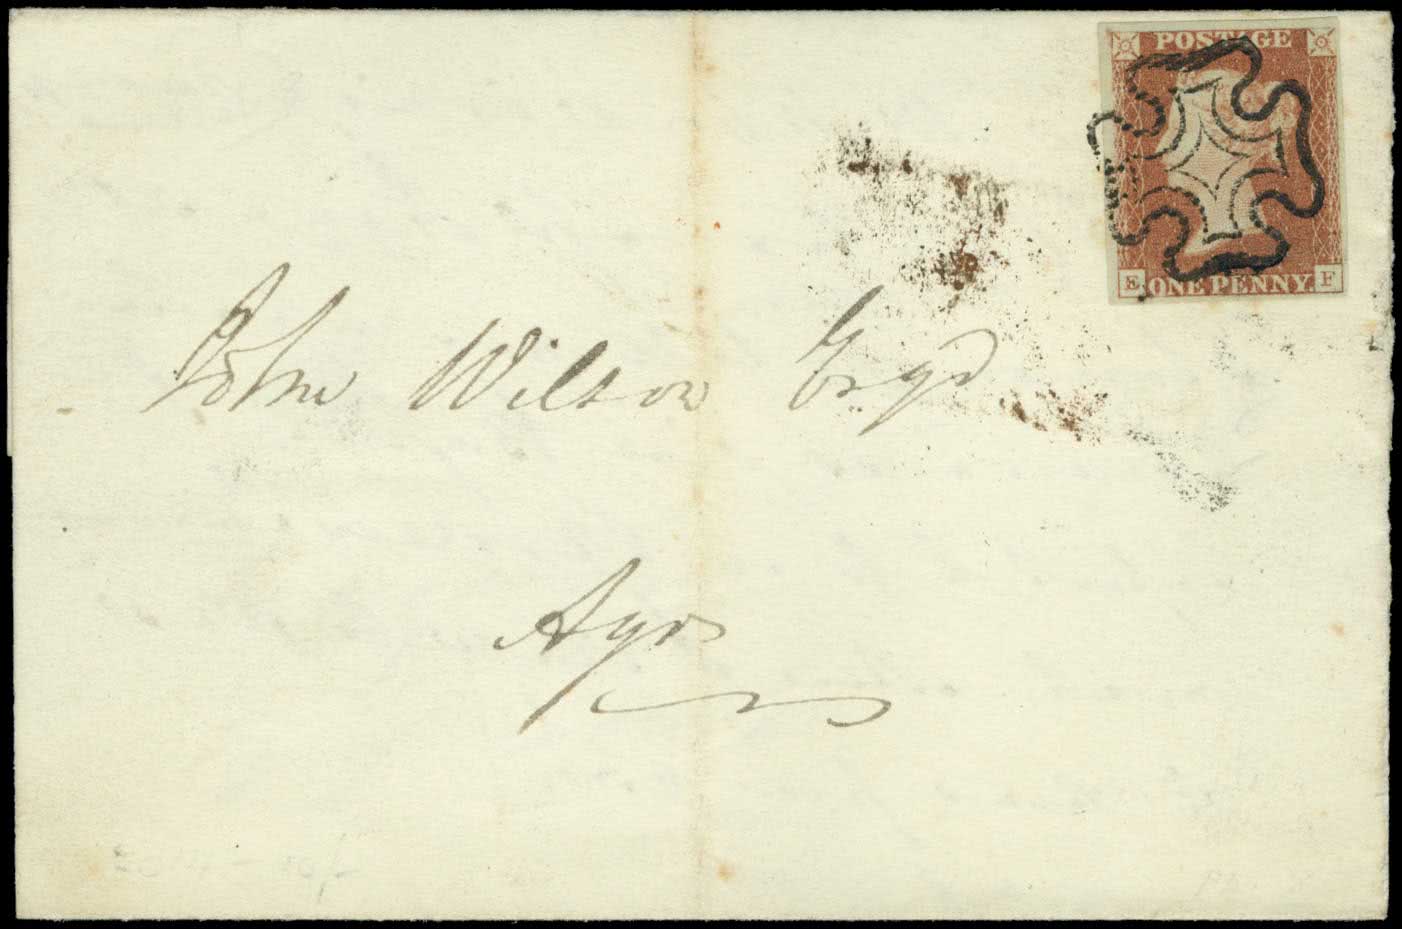 POSTAGE
E ONE PENNY. F
John Wilson Esqr
Ayr